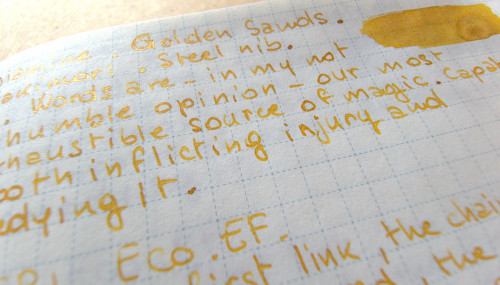 Golden Sands.
Steel nib.
Words are - in my not
humble opinion - our most
source of magic. capab
both inflicting injury, and
edying it.
Eco. EF.
first link, the chai
the